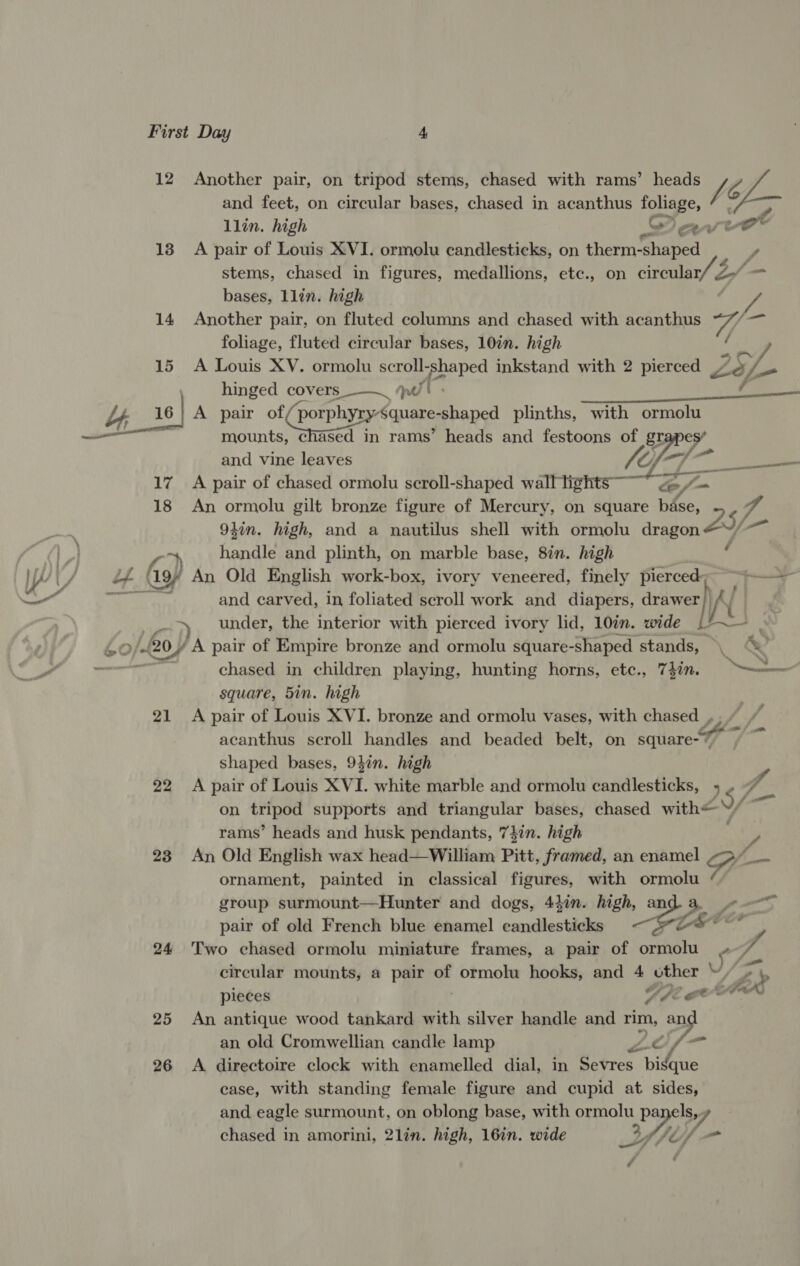 First Day 4
12 Another pair, on tripod stems, chased with rams’ heads
and feet, on circular bases, chased in acanthus foliage,
11in. high
13 A pair of Louis XVI. ormolu candlesticks, on therm-shaped
stems, chased in figures, medallions, etc., on circular
bases, 11in. high
14 Another pair, on fluted columns and chased with acanthus
foliage, fluted circular bases, 10in. high
15 A Louis XV. ormolu scroll-shaped inkstand with 2 pierced
hinged covers
16 A pair of porphyry square-shaped plinths, with ormolu
mounts, chased in rams’ heads and festoons of grapes
and vine leaves
17 A pair of chased ormolu scroll-shaped wall lights
18 An ormolu gilt bronze figure of Mercury, on square base,
9½in. high, and a nautilus shell with ormolu dragon
handle and plinth, on marble base, 8in. high
19 An Old English work-box, ivory veneered, finely pierced,
and carved, in foliated scroll work and diapers, drawer
under, the interior with pierced ivory lid, 10in. wide
20 A pair of Empire bronze and ormolu square-shaped stands,
chased in children playing, hunting horns, etc., 7½in.
square, 5in. high
21 A pair of Louis XVI. bronze and ormolu vases, with chased
acanthus scroll handles and beaded belt, on square-
shaped bases, 9½in. high
22 A pair of Louis XVI. white marble and ormolu candlesticks,
on tripod supports and triangular bases, chased with
rams’ heads and husk pendants, 7½in. high
23 An Old English wax head—William Pitt, framed, an enamel
ornament, painted in classical figures, with ormolu
group surmount—Hunter and dogs, 4½in. high, and a
pair of old French blue enamel candlesticks
24 Two chased ormolu miniature frames, a pair of ormolu
circular mounts, a pair of ormolu hooks, and 4 other
pieces
25 An antique wood tankard with silver handle and rim, and
an old Cromwellian candle lamp
26 A directoire clock with enamelled dial, in Sevres bisque
case, with standing female figure and cupid at sides,
and eagle surmount, on oblong base, with ormolu panels,
chased in amorini, 21in. high, 16in. wide